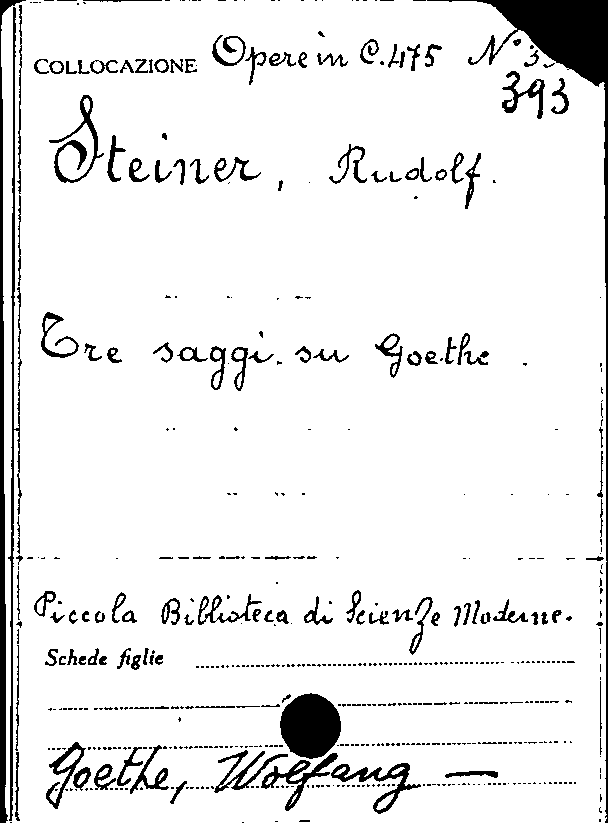 COLLOCAZIONE Opere in C.475 N°
393
Steiner, Rudolf.
Tre saggi su Goethe.
Piccola Biblioteca di Scienze Moderne.
Schede figlie
Goethe, Wolfang —